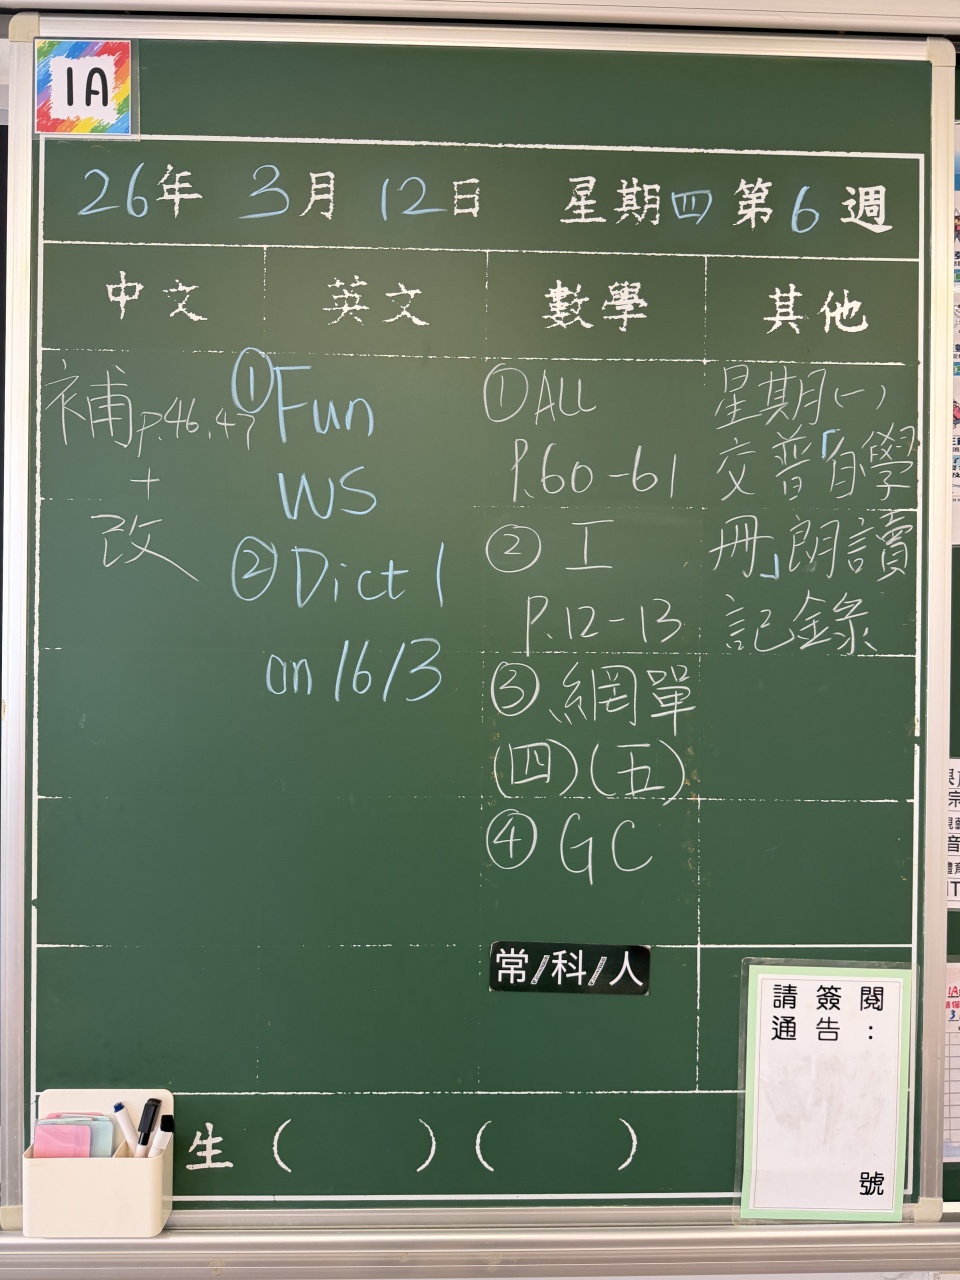 1A
26年 3月 12日 星期四 第6週
中文
補p.46,47
+
改
英文
①Fun
WS
②Dict 1
on 16/3
數學
①ALL
P.60-61
②工
P.12-13
③網單
(四)(五)
④GC
常/科/人
其他
星期(一)
交普「自學
冊」朗讀
記錄
請簽閱
通告:
號
生( )( )